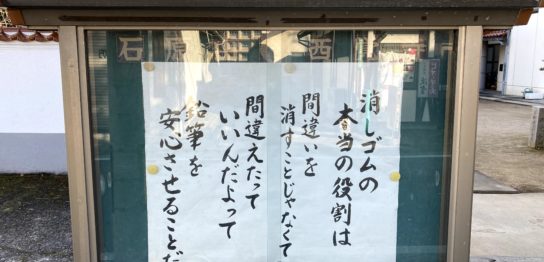 消しゴムの
本当の役割は
間違いを
消すことじゃなくて
間違えたって
いいんだよって
鉛筆を
安心させることだ